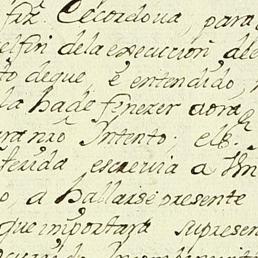 fiz. Cecordoua, para
elfin dela execucion, de
to deque, e entendido,
la hade fenezer aora
para nro Intento; els.
ferida escreuia a
o, a hallarse presente
que importara supresen